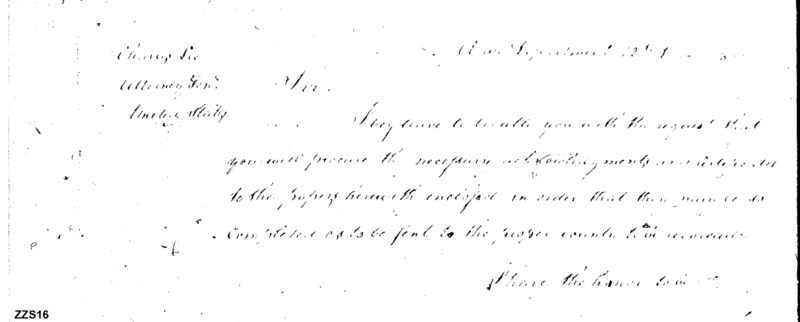 War Department 12th
Charles Lee
Attorney Genl.
United States
Sir.
I beg leave to trouble you with the request that
you will procure the necessary acknowledgments and certificates
to the papers herewith enclosed in order that they may be so
completed as to be sent to the proper county to be recorded
I have the honor to be
ZZS16